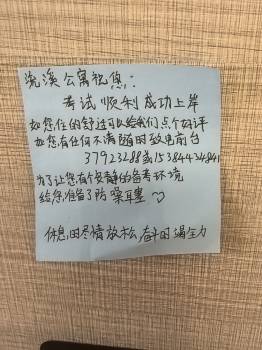 浣溪公寓祝您:
考试顺利成功上岸
如您住的舒适可以给我们点个好评
如您有任何不满随时致电前台
37923288或
为了让您有个安静的备考环境
给您准备了防噪耳塞
休息时尽情放松 奋斗时竭全力